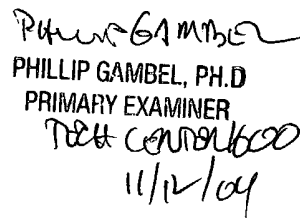 PHILLIP GAMBEL
PHILLIP GAMBEL, PH.D
PRIMARY EXAMINER
TECH CENTER 1600
11/12/04